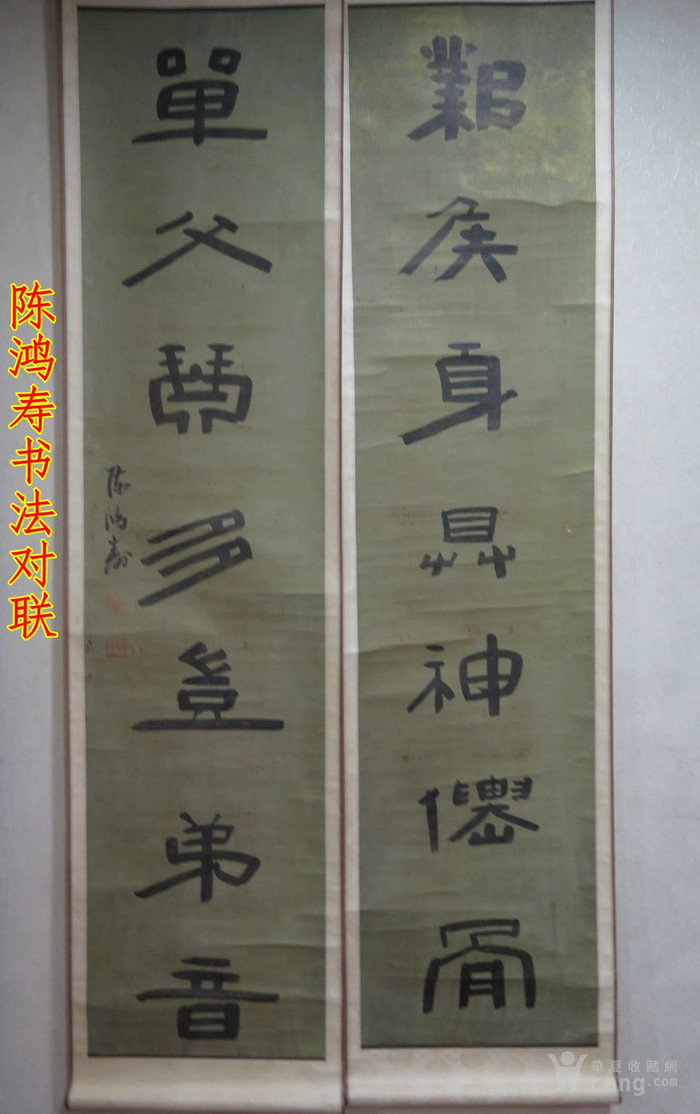 鄴矦身具神僊骨
單父琴多豈弟音
陳鴻壽
陈鸿寿书法对联
華夏收藏網
cang.com